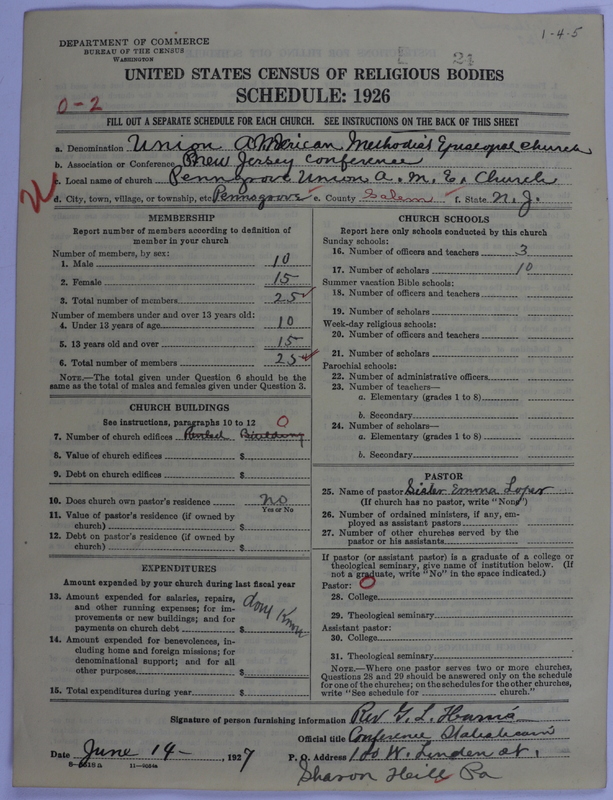 1-4-5
DEPARTMENT OF COMMERCE
BUREAU OF THE CENSUS
WASHINGTON
24
UNITED STATES CENSUS OF RELIGIOUS BODIES
SCHEDULE: 1926
0-2
FILL OUT A SEPARATE SCHEDULE FOR EACH CHURCH. SEE INSTRUCTIONS ON THE BACK OF THIS SHEET
a. Denomination Union American Methodist Episcopal Church
b. Association or Conference New Jersey Conference
c. Local name of church Pennsgrove Union A. M. E. Church
d. City, town, village, or township, etc. Pennsgrove e. County Salem f. State N. J.
MEMBERSHIP
Report number of members according to definition of
member in your church
Number of members, by sex:
1. Male 10
2. Female 15
3. Total number of members 25
Number of members under and over 13 years old:
4. Under 13 years of age 10
5. 13 years old and over 15
6. Total number of members 25
NOTE.—The total given under Question 6 should be the
same as the total of males and females given under Question 3.
CHURCH BUILDINGS
See instructions, paragraphs 10 to 12 0
7. Number of church edifices Rented Building
8. Value of church edifices $
9. Debt on church edifices $
10. Does church own pastor's residence No
Yes or No
11. Value of pastor's residence (if owned by
church) $
12. Debt on pastor's residence (if owned by
church) $
EXPENDITURES
Amount expended by your church during last fiscal year
13. Amount expended for salaries, repairs,
and other running expenses; for im-
provements or new buildings; and for
payments on church debt $ dont Know
14. Amount expended for benevolences, in-
cluding home and foreign missions; for
denominational support; and for all
other purposes $
15. Total expenditures during year $
CHURCH SCHOOLS
Report here only schools conducted by this church
Sunday schools:
16. Number of officers and teachers 3
17. Number of scholars 10
Summer vacation Bible schools:
18. Number of officers and teachers
19. Number of scholars
Week-day religious schools:
20. Number of officers and teachers
21. Number of scholars
Parochial schools:
22. Number of administrative officers
23. Number of teachers—
a. Elementary (grades 1 to 8)
b. Secondary
24. Number of scholars—
a. Elementary (grades 1 to 8)
b. Secondary
PASTOR
25. Name of pastor Sister Emma Loper
(If church has no pastor, write "None")
26. Number of ordained ministers, if any, em-
ployed as assistant pastors
27. Number of other churches served by the
pastor or his assistants
If pastor (or assistant pastor) is a graduate of a college or
theological seminary, give name of institution below. (If
not a graduate, write "No" in the space indicated.)
Pastor: 0
28. College
29. Theological seminary
Assistant pastor:
30. College
31. Theological seminary
NOTE.—Where one pastor serves two or more churches,
Questions 28 and 29 should be answered only on the schedule
for one of the churches; on the schedules for the other churches,
write "See schedule for church."
Signature of person furnishing information Rev G. L.
Official title Conference Statistician
Date June 14- , 1927 P. O. Address 100 W. Linden st,
Sharon Hill Pa